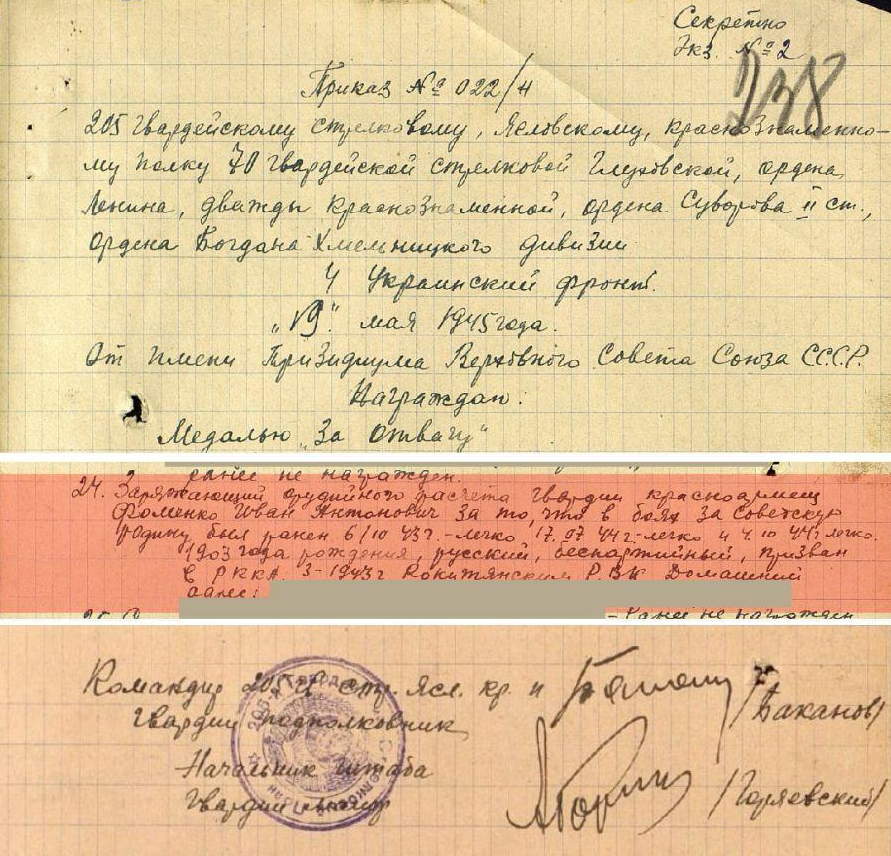 Секретно
Экз. № 2
238
Приказ № 022/4
205 гвардейскому стрелковому, Ясловскому, краснознаменно-
му полку 70 гвардейской стрелковой Глуховской, ордена
Ленина, дважды краснознаменной, ордена Суворова II ст.,
ордена Богдана Хмельницкого дивизии
4 Украинский фронт.
"19" мая 1945 года.
От имени Призидиума Верховного Совета Союза С.С.С.Р.
Награждаю:
Медалью "За отвагу"
ранее не награжден.
24. Заряжающий орудийного расчета гвардии красноармеец
Фоменко Иван Антонович за то, что в боях за советскую
родину был ранен 6/10 43 г. - легко 17.07 44 г - легко и 4.10 44 г легко.
1903 года рождения, русский, беспартийный, призван
в РККА. 3-1943 г Рокитянским Р.В.К Домашний
адрес:
25.
- Ранее не награжден
Командир 205 гв. стр. Ясл. кр. п /Баканов/
Гвардии подполковник
Начальник штаба
Гвардии майор /Горяевский/